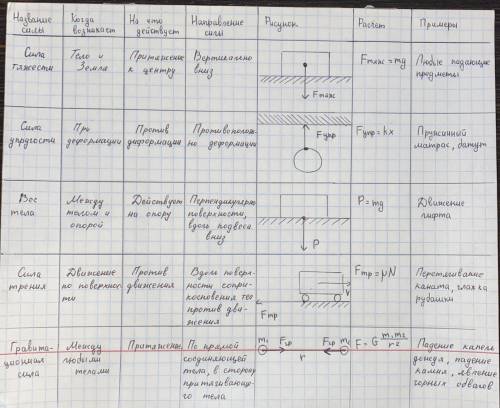 Название силы
Когда возникает
На что действует
Направление силы
Рисунок
Расчет
Примеры
Сила тяжести
Тело и Земля
Притяжение к центру
Вертикально вниз
Fтяж
Fтяж = mg
Любые падающие предметы
Сила упругости
При деформации
Против деформации
Противополож-
но деформации
Fупр
Fупр = kx
Пружинный матрас, батут
Вес тела
Между телом и опорой
Действует на опору
Перпендикулярно
поверхности,
вдоль подвеса
вниз
P
P = mg
Движение лифта
Сила трения
Движение
по поверхнос-
ти
Против движения
Вдоль поверх-
ности сопри-
косновения тел
против дви-
жения
Fтр
V
Fтр = μN
Перетягивание
каната, глажка
рубашки
Гравита-
ционная
сила
Между
любыми
телами
Притяжение
По прямой
соединяющей
тела, в сторону
притягивающе-
го тела
m₁ Fгр Fгр m₂
r
F = G m₁m₂/r²
Падение капель
дождя, падение
камня, явление
горных обвалов